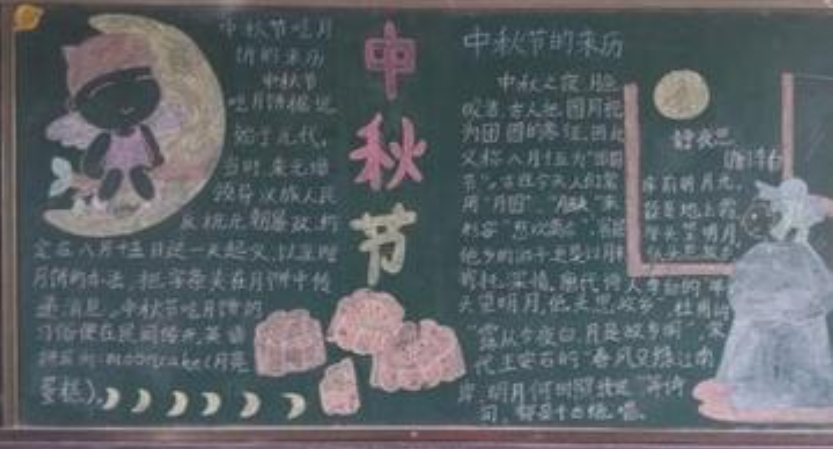 中秋节吃月
饼的来历
中秋节
吃月饼据说
始于元代，
当时，朱元璋
领导汉族人民
反抗元朝暴政，约
定在八月十五日这一天起义，以互赠
月饼的办法，把字条夹在月饼中传
递消息。中秋节吃月饼的
习俗便在民间传开，英语
mooncake(月亮
蛋糕)。
中秋节
中秋节的来历
中秋之夜，月色
皎洁，古人把圆月视
为团圆的象征，因此
又称八月十五为
节"。古往今来，人们常
用"月圆" "月缺"来
形容"悲欢离合"，客居
他乡的游子，更是以月
寄托深情。唐代诗人李白的
头望明月，低头思故乡"，杜甫
"露从今夜白，月是故乡明"，宋
代王安石的"春风又绿江南
岸，明月何时照我还"等诗
句，都是千古绝唱。
静夜思
李白
床前明月光，
疑是地上霜。
举头望明月，
低头思故乡。